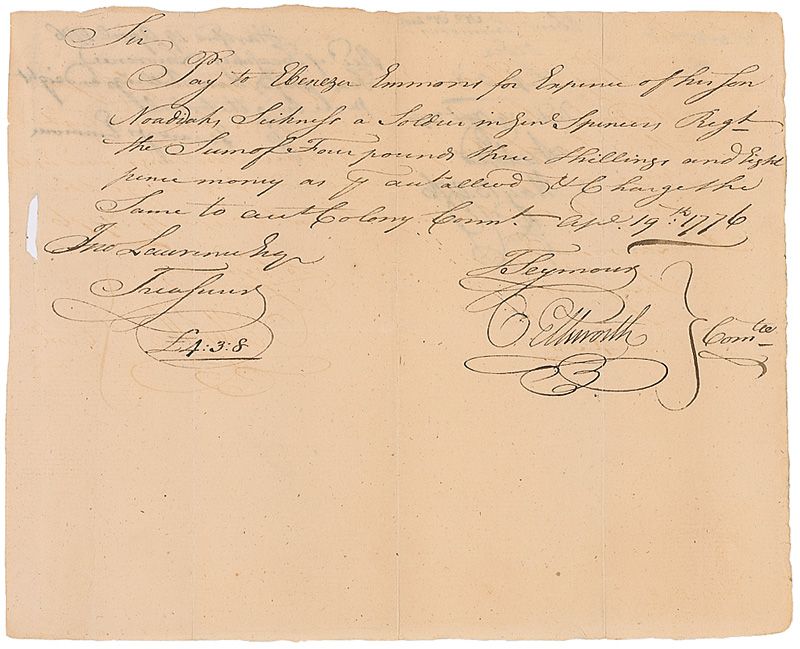 Sir
Pay to Ebenezer Emmons for Expence of his Son
Noadiahs Sickness a Soldier in Genl Spencers Regt
the Sum of Four pounds three Shillings and Eight
pence money as &c Charge the
Same to Colony Count. Apl. 19th. 1776
Jno Lawrence Esq
Treasurer
£4:3:8
T Seymour
O Ellsworth
Comtee